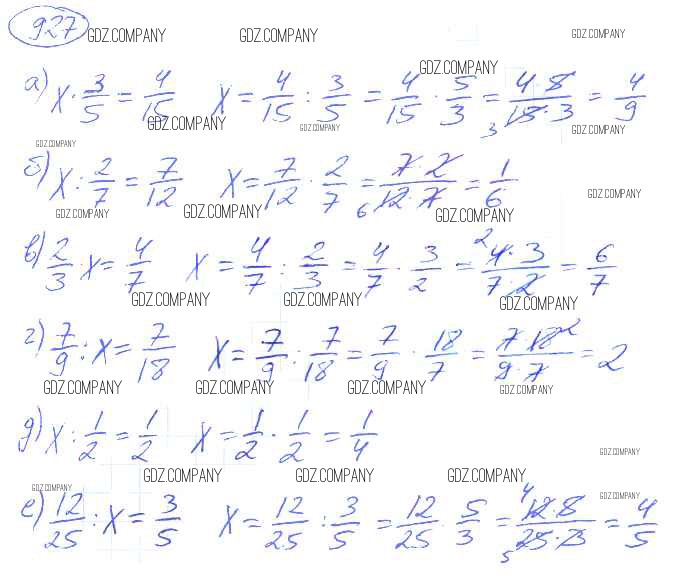 927
GDZ.COMPANY GDZ.COMPANY GDZ.COMPANY
GDZ.COMPANY
а) x · 3/5 = 4/15 x = 4/15 : 3/5 = 4/15 · 5/3 = 4·5/15·3 3 = 4/9
GDZ.COMPANY GDZ.COMPANY GDZ.COMPANY
GDZ.COMPANY
б) x : 2/7 = 7/12 x = 7/12 · 2/7 = 7·2/12·7 6 = 1/6
GDZ.COMPANY
GDZ.COMPANY GDZ.COMPANY GDZ.COMPANY
в) 2/3 · x = 4/7 x = 4/7 : 2/3 = 4/7 · 3/2 = 2 4·3/7·2 = 6/7
GDZ.COMPANY GDZ.COMPANY GDZ.COMPANY
г) 7/9 : x = 7/18 x = 7/9 : 7/18 = 7/9 · 18/7 = 7·18 2/9·7 = 2
GDZ.COMPANY GDZ.COMPANY GDZ.COMPANY GDZ.COMPANY
д) x : 1/2 = 1/2 x = 1/2 · 1/2 = 1/4
GDZ.COMPANY
GDZ.COMPANY GDZ.COMPANY GDZ.COMPANY
GDZ.COMPANY GDZ.COMPANY
е) 12/25 : x = 3/5 x = 12/25 : 3/5 = 12/25 · 5/3 = 4 12·5/25·3 5 = 4/5